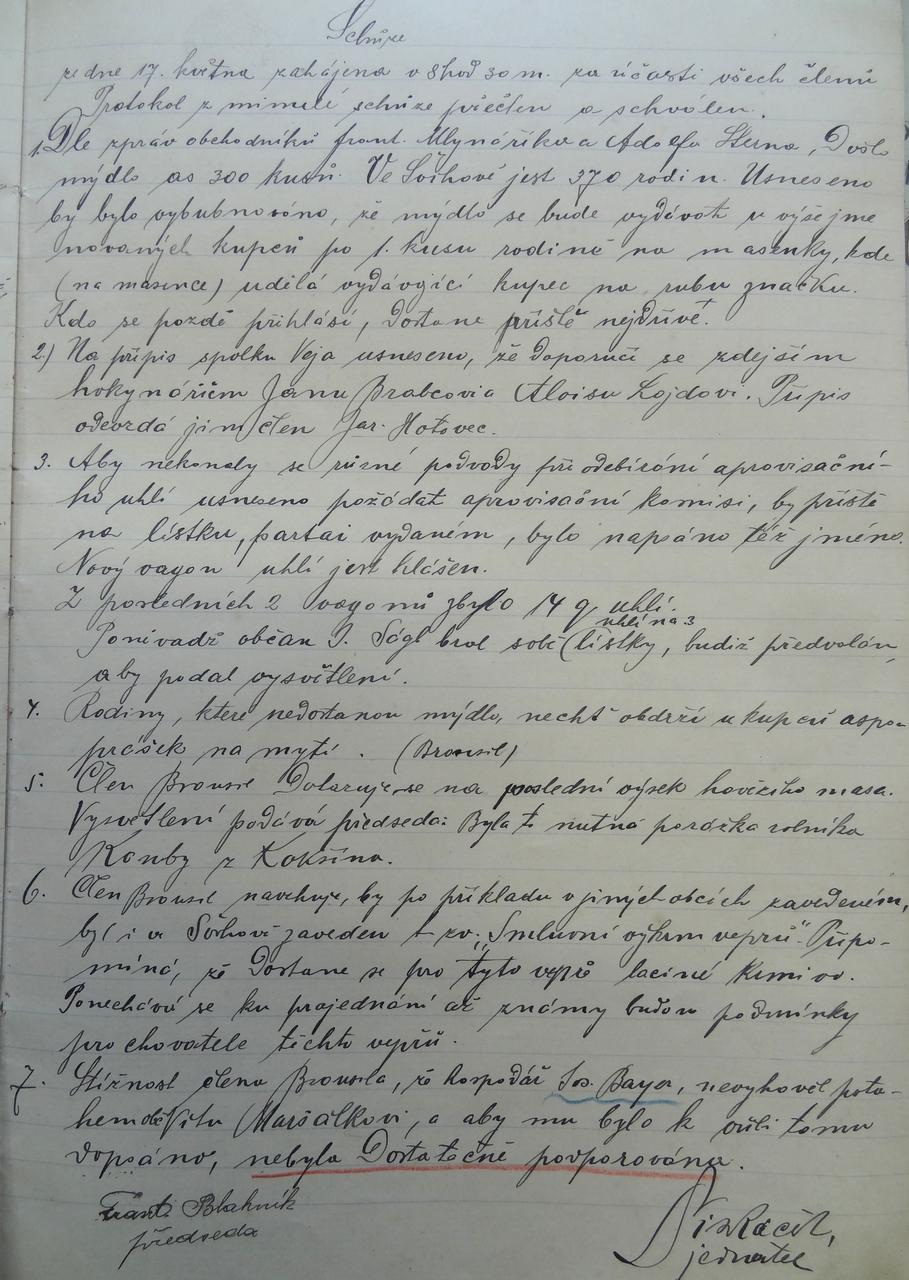 Schůze
ze dne 17. května zahájena v 8 hod 30 m. za účasti všech členů
Protokol z minulé schůze přečten a schválen.
1. Dle zpráv obchodníků Frant. Mlynáříka a Adolfa Sterna, Došlo
mýdlo as 300 kusů. Ve Svihově jest 370 rodin. Usneseno
by bylo vybubnováno, že mýdlo se bude vydávati u výše jme
novaných kupců po 1. kusu rodině na masenky, kde
(na masence) udělá vydávající kupec na rubu značku.
Kdo se pozdě přihlásí, Dostane příště nejdříve.
2.) Na přípis spolku Veja usneseno, že doporučí se zdejším
hokynářům Janu Brabcovi a Aloisu Lojdovi. Přípis
odevzdá jim člen Jar. Hotovec.
3. Aby nekonaly se různé podvody při odebírání aprovisační-
ho uhlí usneseno požádat aprovisační komisi, by příště
na lístku, partai vydaném, bylo napsáno též jméno.
Nový vagon uhlí jest hlášen.
Z posledních 2 vagonů zbylo 14 q uhlí.
uhlí na 3
Poněvadž občan J. Ságl bral sobě (lístky, budiž předvolán,
aby podal vysvětlení.
4. Rodiny, které nedostanou mýdlo, nechť obdrží u kupců aspo-
prášek na mytí. (Brousil)
5. Člen Brousil Dotazuje se na poslední výsek hovězího masa.
Vysvětlení podává předseda: Byla to nutná porážka rolníka
Kouby z Kokšína.
6. Člen Brousil navrhuje, by po příkladu v jiných obcích zavedeném,
byl i ve Svihově zaveden t. zv. "Smluvní výkrm vepřů". Připo-
míná, že Dostane se pro tyto vepře laciné krmivo.
Ponechává se ku projednání až známy budou podmínky
pro chovatele těchto vepřů.
7. Stížnost člena Brousila, že hospodář Jos. Bayer, nevyhověl pota-
hem Maršálkovi, a aby mu bylo k vůli tomu
dopsáno, nebyla Dostatečně podporována.
Frant. Blahník
předseda
jednatel